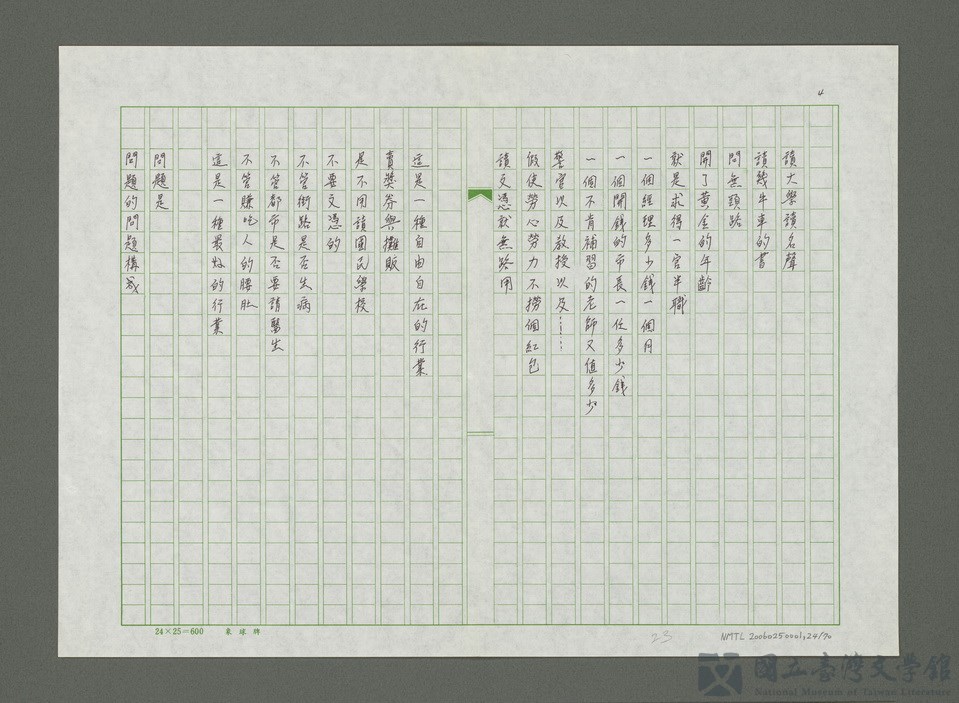 4
讀大學讀名聲
讀幾牛車的書
問無頭路
開了黃金的年齡
就是求得一官半職
一個經理多少錢一個月
一個開錢的市長一任多少錢
一個不肯補習的老師又值多少
警官以及教授以及……
假使勞心勞力不撈個紅包
讀文憑就無路用
這是一種自由自在的行業
賣獎券與攤販
是不用讀國民學校
不要文憑的
不管街路是否生病
不管都市是否要請醫生
不管賺吃人的腰肚
這是一種最好的行業
問題是
問題的問題構成
24×25=600 東球牌
23
NMTL 20060250001,24/70
國立臺灣文學館
National Museum of Taiwan Literature